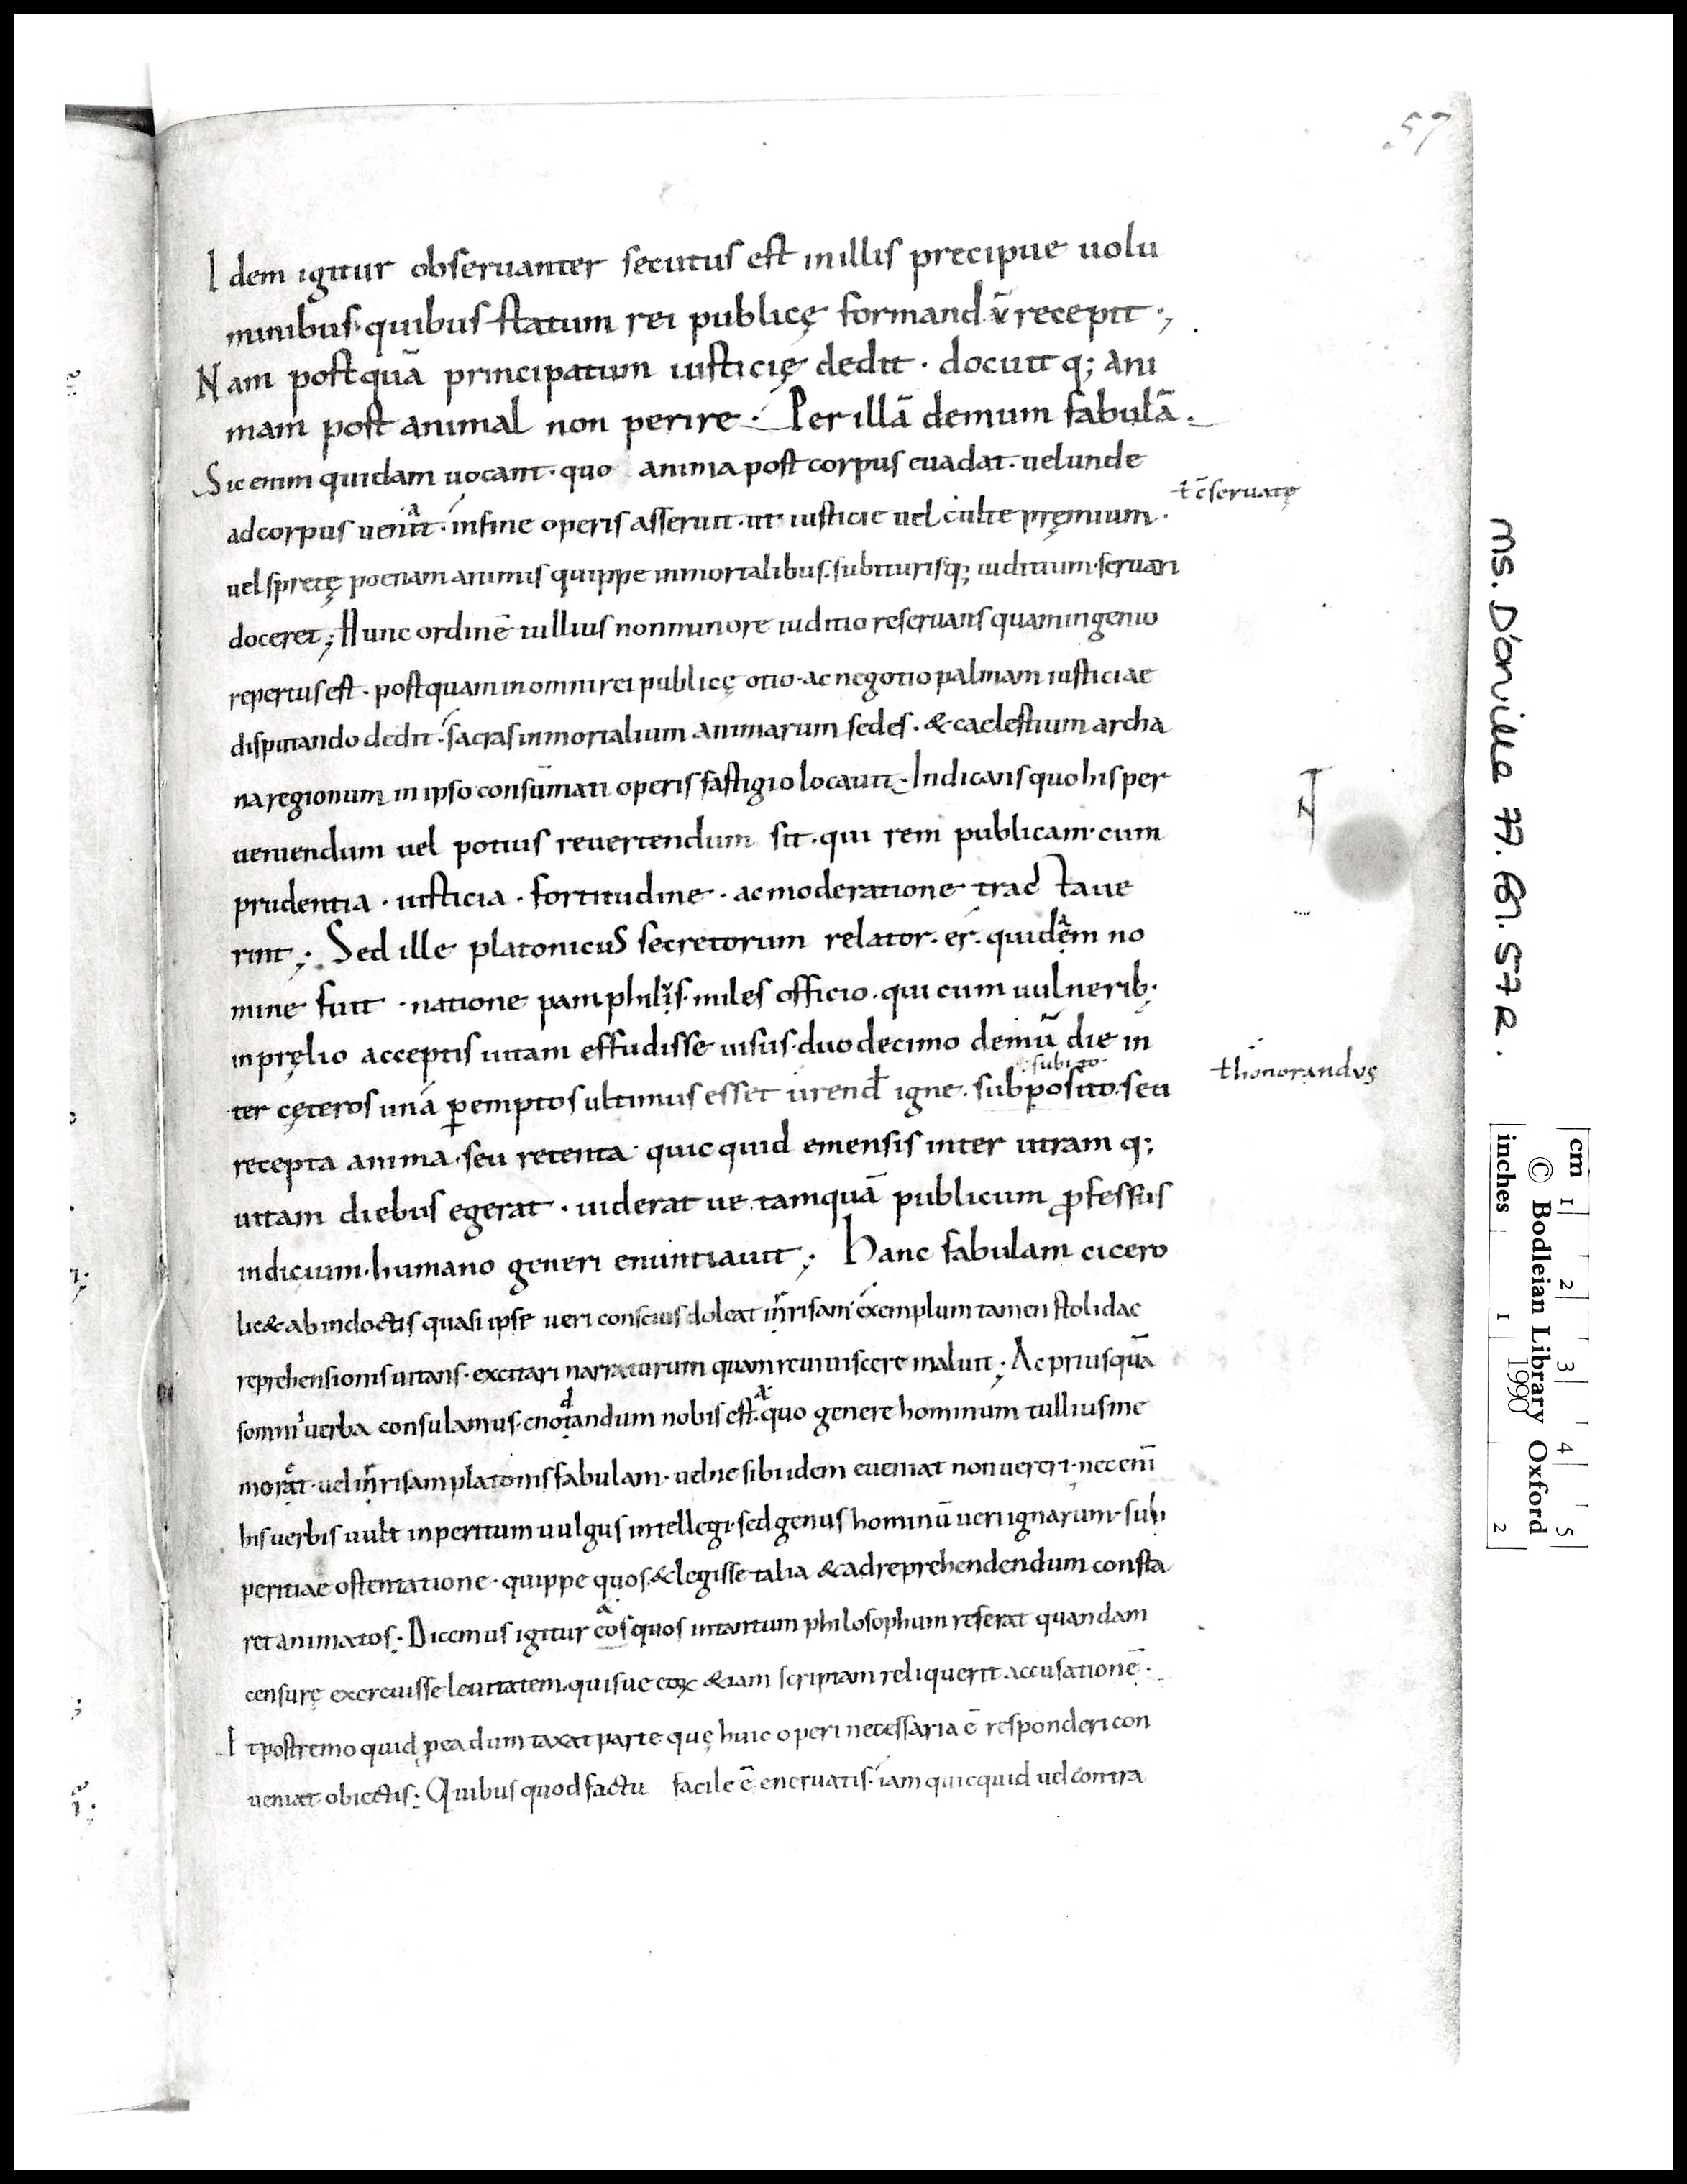 57
Idem igitur obseruanter secutus est in illis precipue uolu
minibus· quibus statum rei publicę formandū recepit ;
Nam postquā principatum iusticię dedit · docuitq; ani
mam post animal non perire · Per illā demum fabulā·
Sic enim quidam uocant· quo anima post corpus euadat· uel unde
ad corpus ueniat· in fine operis asseruit· ut iusticie uel culte pręmium·
ł cōseruatę
uel spretę poenam animis quippe inmortalibus· subiturisq; iuditium· seruari
doceret ; Hunc ordinē tullius non minore iuditio reseruans quam ingenio
repertus est · postquam in omni rei publicę otio· ac negotio palmam iusticiae
disputando dedit · sacras inmortalium animarum sedes · & caelestium archa
na regionum in ipso consūmati operis fastigio locauit· Indicans quo his per
ueniendum uel potius reuertendum sit · qui rem publicam· cum
prudentia · iusticia · fortitudine · ac moderatione tractaue
rint ; Sed ille platonicus secretorum relator· er· quidam no
mine fuit · natione pamphilus· miles officio· qui cum uulnerib·
in pręlio acceptis uitam effudisse uisus· duodecimo demū die in
subiecto
ł honorandus
ter cęteros unā pemptos ultimus esset urend igne· subposito· seu
recepta anima· seu retenta quicquid emensis inter utramq;
uitam diebus egerat · uiderat ue tamquā publicum pfessus
indicium· humano generi enuntiauit ; Hanc fabulam cicero
lic& ab indoctis quasi ipse ueri conscius doleat irrisam· exemplum tamen stolidae
reprehensionis uitans· excitari narraturum quam reuiuiscere maluit ; Ac priusquā
somnii uerba consulamus· enodandum nobis est· a quo genere hominum tullius me
moret· uel irrisam platonis fabulam· uel ne sibi idem eueniat non uereri· nec enī
his uerbis uult inperitum uulgus intellegi· sed genus hominū ueri ignarum· sub
peritiae ostentatione · quippe quos & legisse talia & ad reprehendendum consta
ret animatos · Dicemus igitur & quos in tantum philosophum referat quandam
censurę exercuisse leuitatem· quisue eorx &iam scriptam reliquerit accusationē·
Et postremo quid pea dum taxat parte quę huic operi necessaria ē responderi con
ueniat obiectis : Quibus quod factu facile ē eneruatis· iam quicquid uel contra
ms. D'orville 77. fol. 57R.
cm 1 2 3 4 5
© Bodleian Library Oxford
1990
inches 1 2